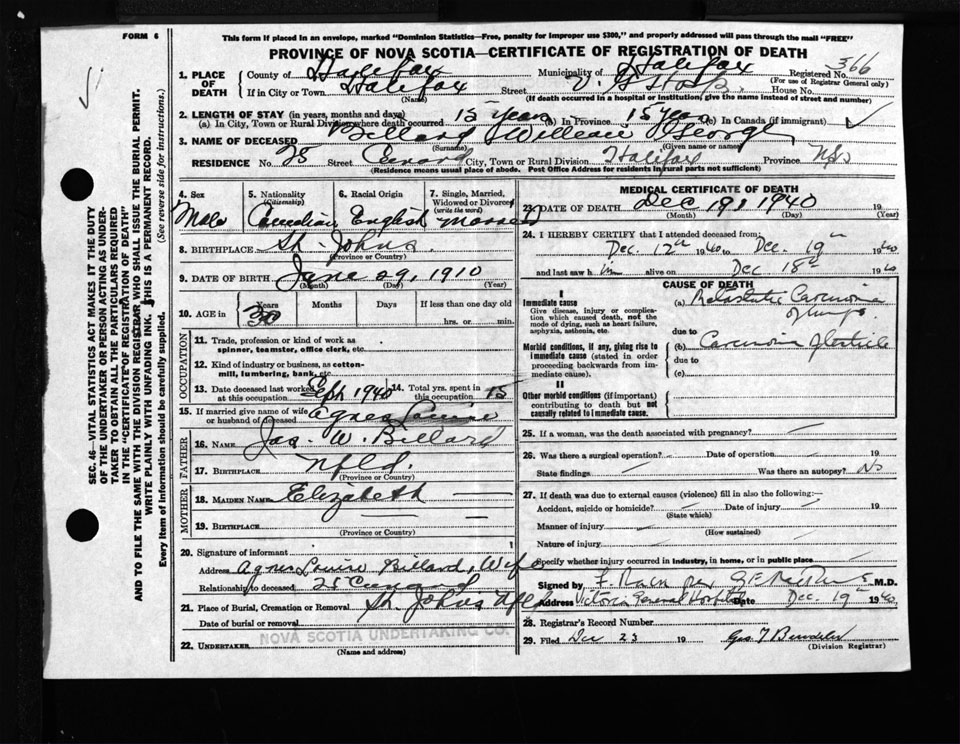 FORM 6
This form if placed in an envelope, marked "Dominion Statistics—Free, penalty for improper use $300," and properly addressed will pass through the mail "FREE"
PROVINCE OF NOVA SCOTIA—CERTIFICATE OF REGISTRATION OF DEATH
1. PLACE OF DEATH
County of Halifax Municipality of Halifax Registered No. 366
(For use of Registrar General only)
If in City or Town Halifax Street V. G. Hosp. House No.
(Name) (If death occurred in a hospital or institution, give the name instead of street and number)
2. LENGTH OF STAY (in years, months and days)
(a) In City, Town or Rural Division where death occurred 15 years (b) In Province 15 years (c) In Canada (if immigrant)
3. NAME OF DECEASED Billard William George
(Surname) (Given name or names)
RESIDENCE No. 25 Street City, Town or Rural Division Halifax Province N.S.
(Residence means usual place of abode. Post Office Address for residents in rural parts not sufficient)
4. Sex
Male
5. Nationality (Citizenship)
Canadian
6. Racial Origin
English
7. Single, Married, Widowed or Divorced (write the word)
Married
8. BIRTHPLACE St. Johns
(Province or Country)
9. DATE OF BIRTH June 29, 1910
(Month) (Day) (Year)
10. AGE in Years Months Days If less than one day old
30 hrs. or min.
OCCUPATION
11. Trade, profession or kind of work as spinner, teamster, office clerk, etc.
12. Kind of industry or business, as cotton-mill, lumbering, bank, etc.
13. Date deceased last worked at this occupation Sept 1940 14. Total yrs. spent in this occupation 15
15. If married give name of wife or husband of deceased Agnes Louise
FATHER
16. NAME Jas. W. Billard
17. BIRTHPLACE Nfld.
(Province or Country)
MOTHER
18. MAIDEN NAME Elizabeth —
19. BIRTHPLACE —
(Province or Country)
20. Signature of informant
Address Agnes Louise Billard, Wife
Relationship to deceased 25
21. Place of Burial, Cremation or Removal St. Johns Nfld
Date of burial or removal 19
22. UNDERTAKER NOVA SCOTIA UNDERTAKING CO.
(Name and address)
MEDICAL CERTIFICATE OF DEATH
23. DATE OF DEATH Dec 19, 1940 19
(Month) (Day) (Year)
24. I HEREBY CERTIFY that I attended deceased from:
Dec. 12th 1940 to Dec. 19th 1940
and last saw him alive on Dec 18th 1940
CAUSE OF DEATH
I
Immediate cause
Give disease, injury or complication which caused death, not the mode of dying, such as heart failure, asphyxia, asthenia, etc.
(a) Carcinoma of lungs
due to
Morbid conditions, if any, giving rise to immediate cause (stated in order proceeding backwards from immediate cause).
(b) Carcinoma of testicle
due to
(c)
II
Other morbid conditions (if important) contributing to death but not causally related to immediate cause.
25. If a woman, was the death associated with pregnancy? —
26. Was there a surgical operation? — Date of operation — 19
State findings — Was there an autopsy? No
27. If death was due to external causes (violence) fill in also the following:—
Accident, suicide or homicide? — Date of injury — 19
(State which)
Manner of injury —
(How sustained)
Nature of injury —
Specify whether injury occurred in industry, in home, or in public place —
Signed by M.D.
Address Victoria General Hospital Date Dec. 19th 1940
28. Registrar's Record Number
29. Filed Dec 23 19
(Division Registrar)
SEC. 46—VITAL STATISTICS ACT MAKES IT THE DUTY
OF THE UNDERTAKER OR PERSON ACTING AS UNDER-
TAKER TO OBTAIN ALL THE PARTICULARS REQUIRED
IN THE "CERTIFICATE OF REGISTRATION OF DEATH"
AND TO FILE THE SAME WITH THE DIVISION REGISTRAR WHO SHALL ISSUE THE BURIAL PERMIT.
WRITE PLAINLY WITH UNFADING INK. THIS IS A PERMANENT RECORD.
Every item of information should be carefully supplied. (See reverse side for instructions.)